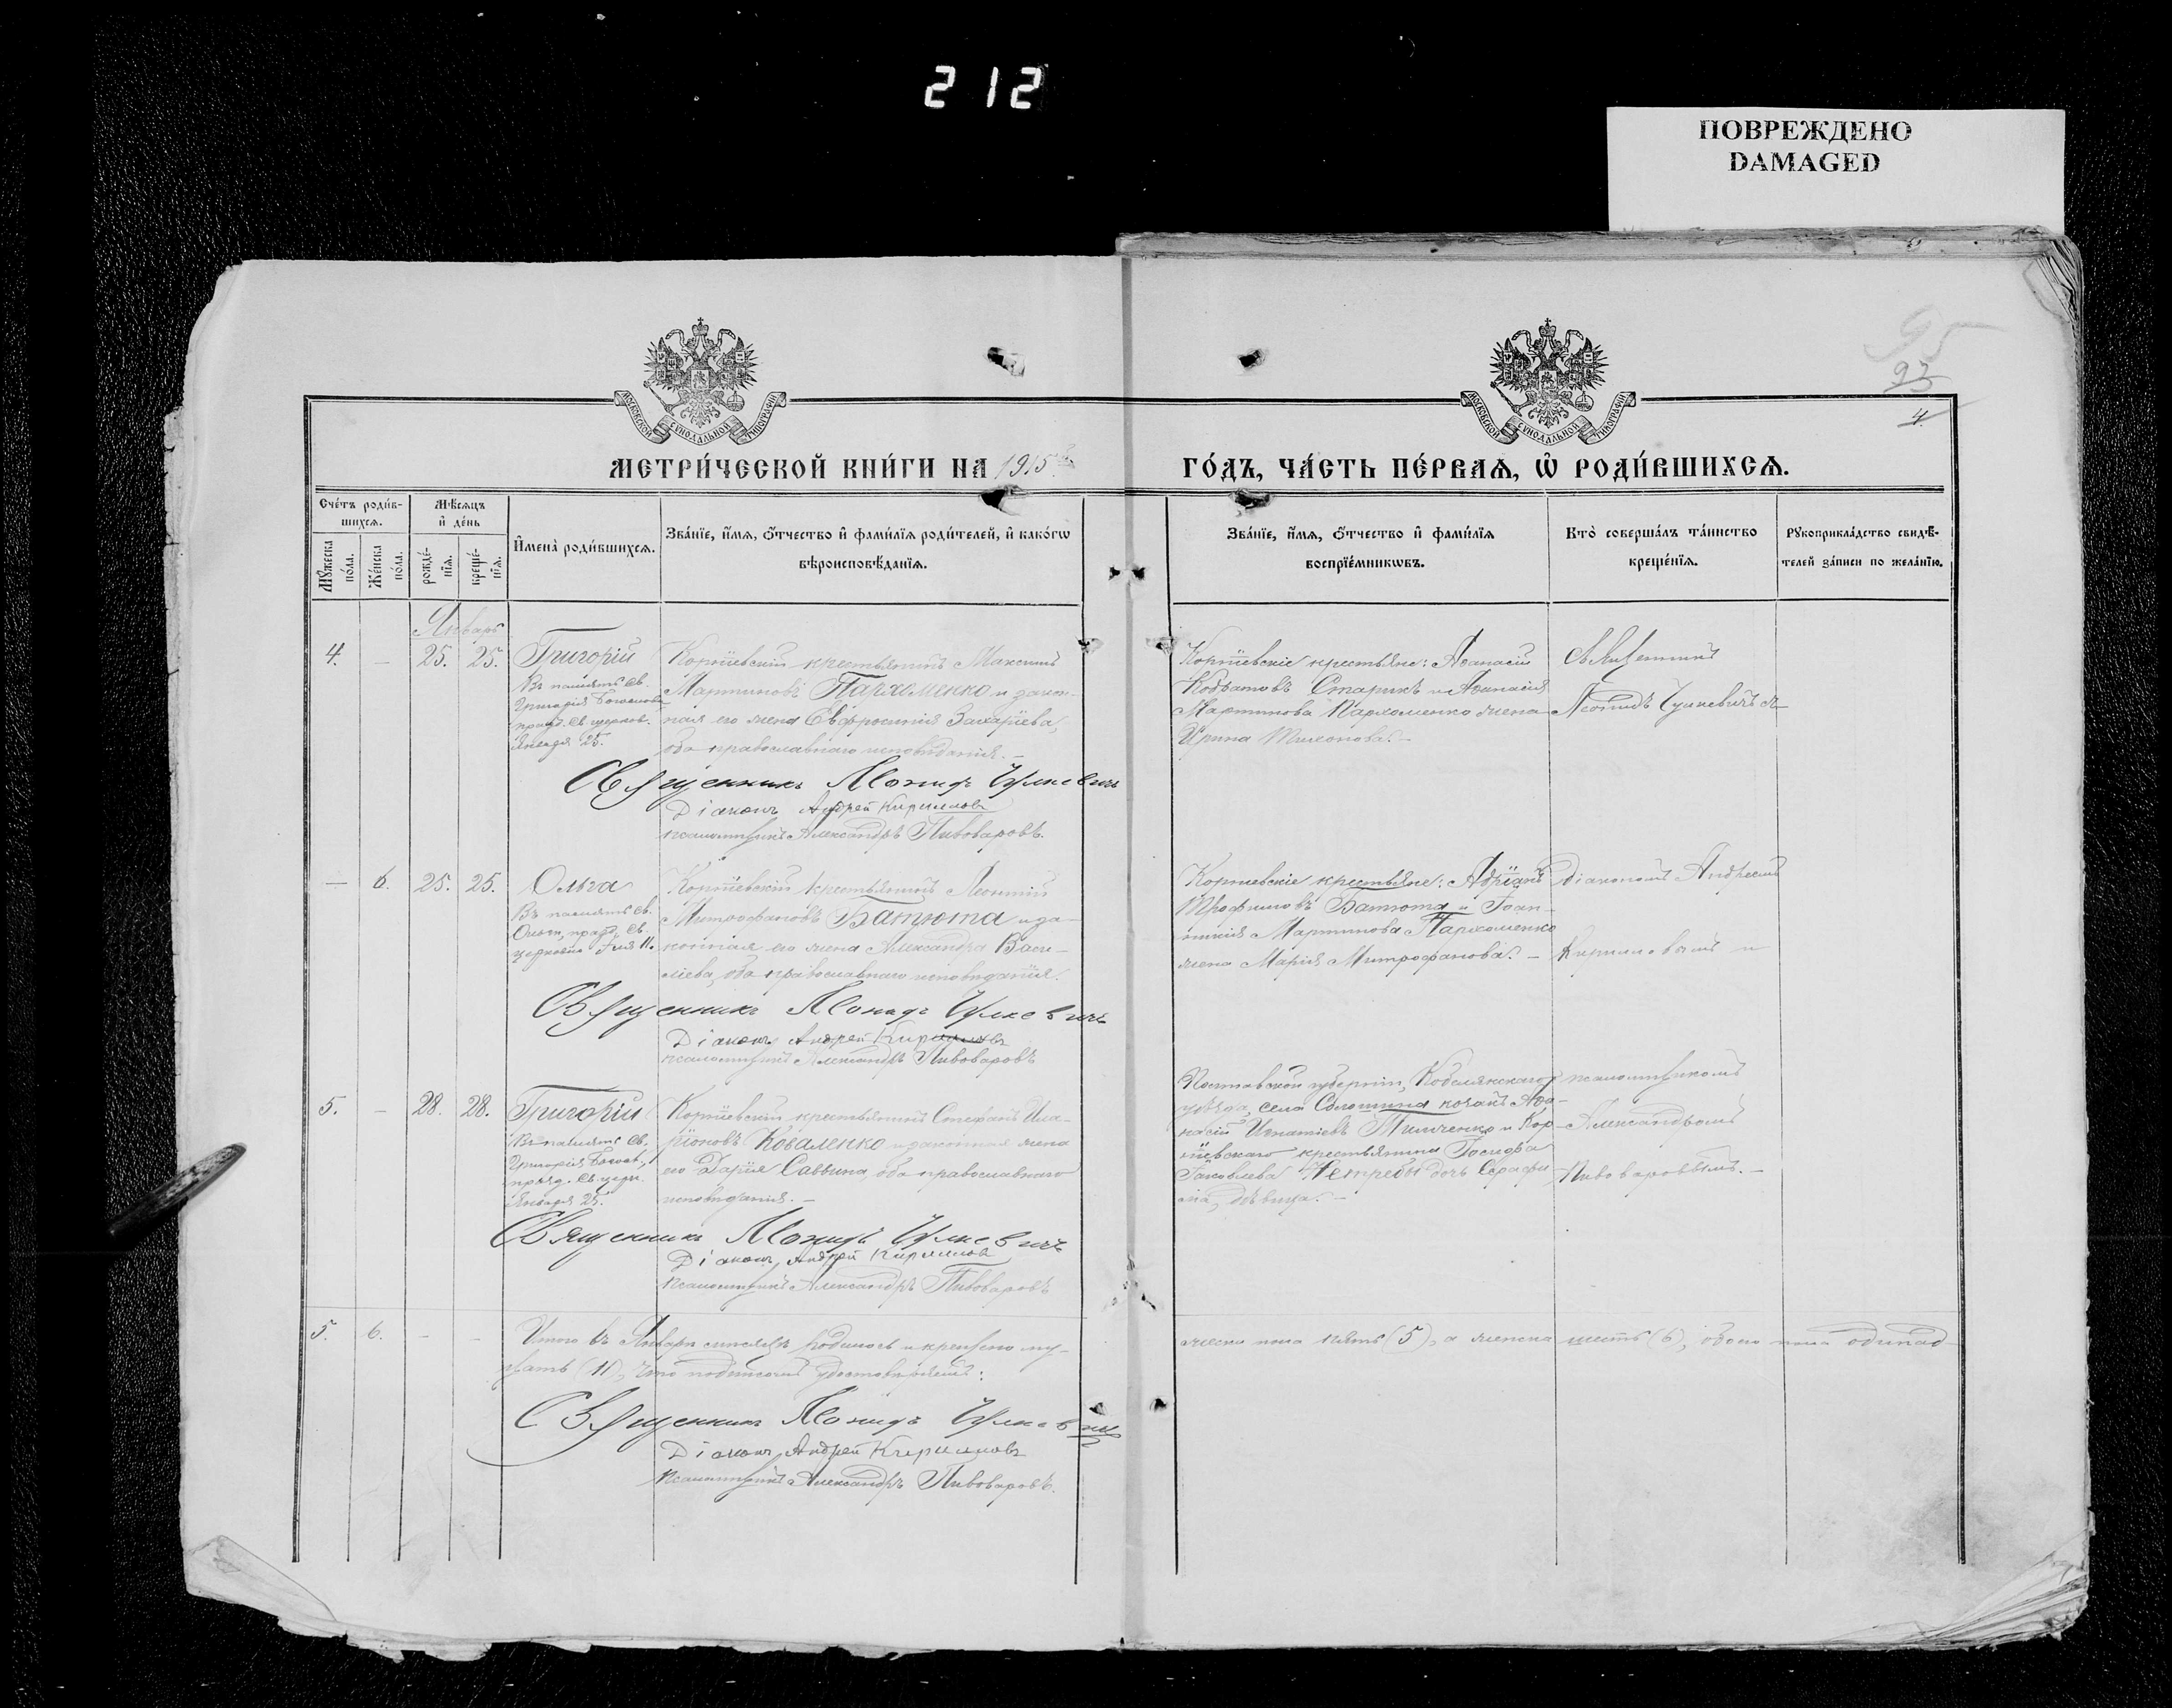 212
ПОВРЕЖДЕНО
DAMAGED
95
93
4
МОСКОВСКОЙ СѴНОДАЛЬНОЙ ТИПОГРАФІИ
МОСКОВСКОЙ СѴНОДАЛЬНОЙ ТИПОГРАФІИ
МЕТРИ́ЧЕСКОЙ КНИ́ГИ НА 1915 ГО́ДЪ, ЧА́СТЬ ПЕ́РВАѦ, Ѡ҆ РОДИ́ВШИХСѦ.
Сче́тъ роди́в-
шихсѧ.
Мѣ́сѧцъ
и҆ де́нь
Мꙋ́жеска
по́ла.
Же́нска
по́ла.
рожде́-
нїѧ.
креще́-
нїѧ.
И҆мена̀ роди́вшихсѧ.
Зва́нїе, и҆́мѧ, ѻ҆́тчество и҆ фами́лїѧ роди́телей, и҆ како́гѡ
вѣроисповѣ́данїѧ.
Зва́нїе, и҆́мѧ, ѻ҆́тчество и҆ фами́лїѧ
воспрїе́мникѡвъ.
Кто̀ соверша́лъ та́инство
креще́нїѧ.
Рꙋкоприкла́дство свидѣ́-
телей за́писи по жела́нїю.
Январь
4. — 25. 25. Григорій
Въ память св.
Григорія Богослова
празд. св. церков.
Января 25.
Корпіевскій крестьянинъ Максимъ
Мартиновъ Пархоменко и закон-
ная его жена Евфросинія Захаріева,
оба православнаго исповѣданія. —
Священникъ Леонидъ Чулкевичъ
Діаконъ Андрей Кирилловъ
Псаломщикъ Александръ Пивоваровъ.
Корпіевскіе крестьяне: Аѳанасій
Кодратовъ Старикъ и Аѳанасія
Мартинова Пархоменко жена
Ирина Тихонова. —
Священникъ
Леонидъ Чулкевичъ съ
— 6. 25. 25. Ольга
Въ память св.
Ольги, празд. св.
церковію Іюля 11.
Корпіевскій крестьянинъ Леонтій
Митрофановъ Батюта и за-
конная его жена Александра Васи-
ліева, оба православнаго исповѣданія.
Священникъ Леонидъ Чулкевичъ
Діаконъ Андрей Кирилловъ
Псаломщикъ Александръ Пивоваровъ
Корпіевскіе крестьяне: Адріанъ
Трофимовъ Батюта и Іоан-
никія Мартинова Пархоменко
жена Марія Митрофанова. —
діакономъ Андреемъ
Кирилловымъ и
5. — 28. 28. Григорій
Въ память св.
Григорія Богосл.,
празд. св. церк.
Января 25.
Корпіевскій крестьянинъ Стефанъ Ила-
ріоновъ Коваленко и законная жена
его Дарія Саввина, оба православнаго
исповѣданія. —
Священникъ Леонидъ Чулкевичъ
Діаконъ Андрей Кирилловъ
Псаломщикъ Александръ Пивоваровъ
Полтавской губерніи, Кобелякскаго
уѣзда, села Солошина козакъ Аѳа-
насій Игнатіевъ Тимченко и Кор-
піевскаго крестьянина Іосифа
Іаковлева Нетребы дочь Серафи-
ма, дѣвица. —
псаломщикомъ
Александромъ
Пивоваровымъ. —
5. 6. — — Итого въ Январѣ мѣсяцѣ родилось и крещено му-
жеска пола пять (5), а женска шесть (6), обоего пола одинад-
цать (11), что подписомъ удостовѣряемъ:
Священникъ Леонидъ Чулкевичъ
Діаконъ Андрей Кирилловъ
Псаломщикъ Александръ Пивоваровъ.